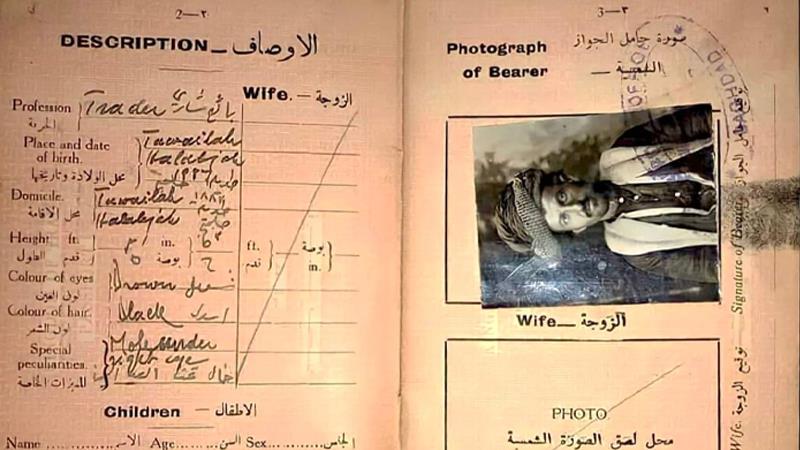 2—٢
DESCRIPTION — الاوصاف
Wife. — الزوجة
Profession Trader
الحرفة
Place and date of birth. Tawailah
Halabjah
محل الولادة وتاريخها
Domicile. Tawailah
محل الاقامة Halabjah
Height ft. 5 in. 6 ft. بوصة
الطول قدم ٥ بوصة ٦ قدم in.
Colour of eyes Brown
لون العين
Colour of hair. black اسود
لون الشعر
Special peculiarities. Mole under
right eye
المميزات الخاصة خال تحت العين
Children — الاطفال
Name الاسم Age السن Sex الجنس
3—٣
Photograph of Bearer — صورة حامل الجواز الشمسية
BAGHDAD
Wife — الزوجة
PHOTO
محل لصق الصورة الشمسية
Signature of Bearer توقيع حامل الجواز
Signature of Wife. توقيع الزوجة